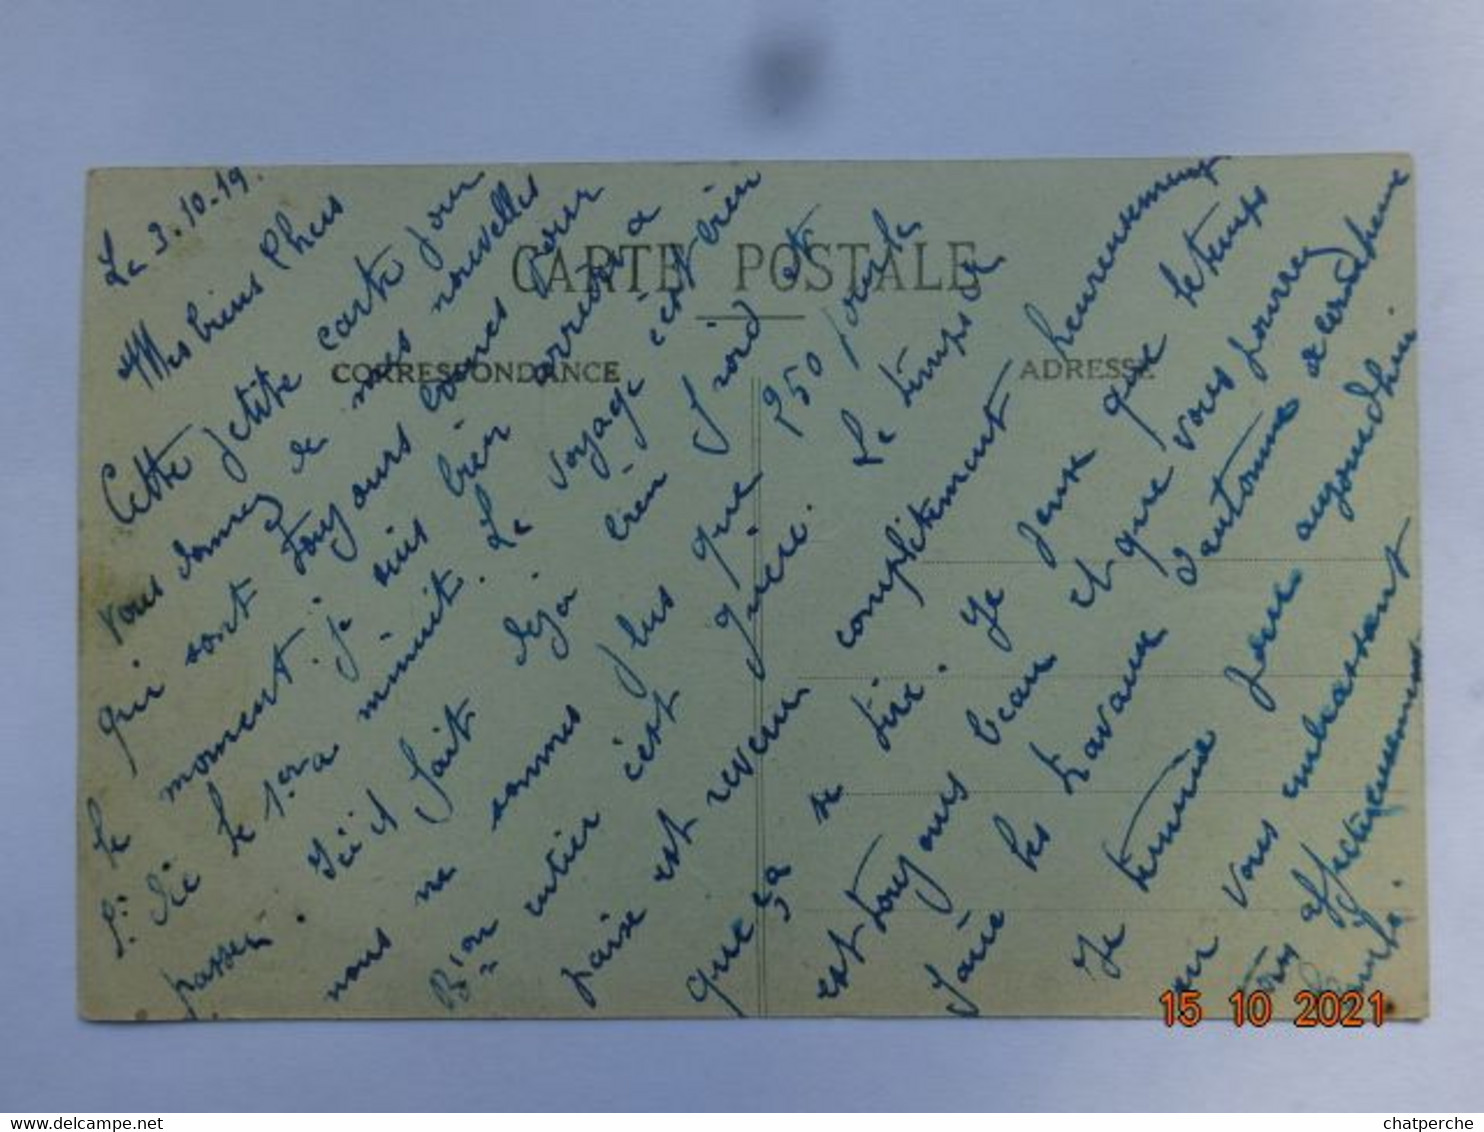 Le 3-10-19.
Mes biens Chers
Cette petite carte pour
vous donner de mes nouvelles
qui sont toujours bonnes pour
le moment. je suis bien arrivé à
St Dié le 1er a minuit. Le voyage c'est bien
passer. Ici il fait déja bien froid et
nous ne sommes plus que 250 pour le
B'on entier c'est guère. Le temps a
paise est revenu complitement heureusement
que ça se tire. Je pense que le temps
est toujours beau et que vous pourrez
faire les travaux d'automne de bonne heure
Je termine pour aujourdhui
en vous embrassant
tous affectueusement
CARTE POSTALE
CORRESPONDANCE
ADRESSE
15 10 2021
delcampe.net
chatperche